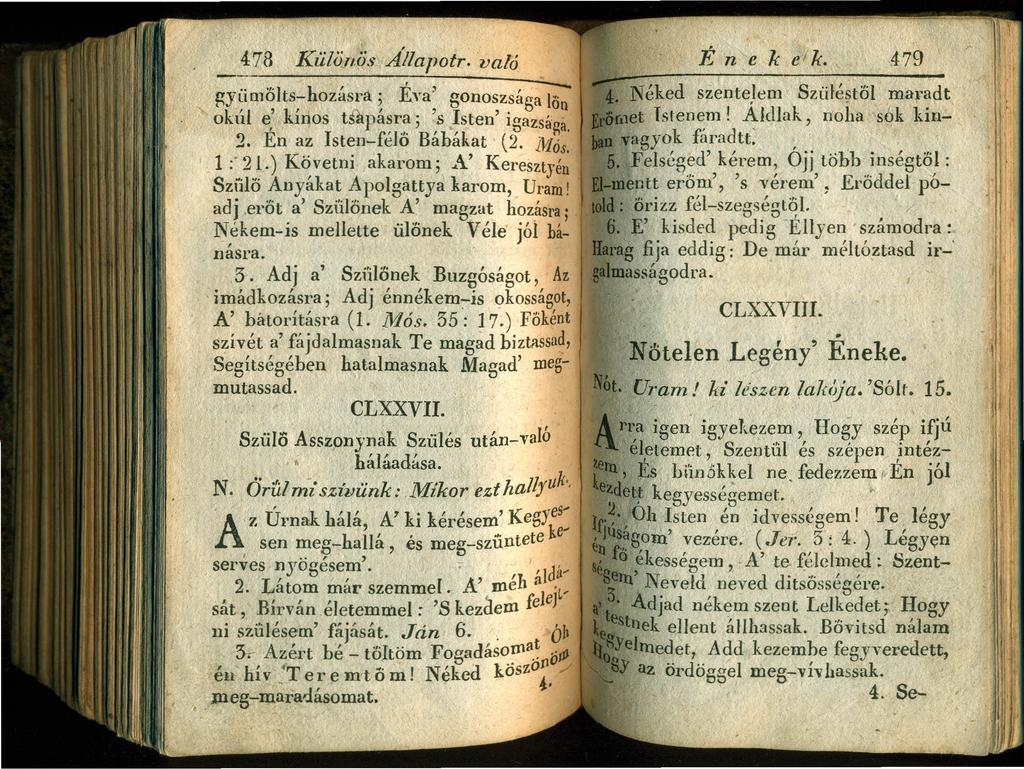 478 Különös Állapotr. való
gyümölts-hozásra ; Éva' gonoszsága lőn
okúl e' kínos tsapásra ; 's Isten' igazsága.
2. Én az Isten-félő Bábákat (2. Mós.
1 : 21.) Követni akarom; A' Keresztyén
Szülő Anyákat Apolgattya karom, Uram!
adj erőt a' Szülőnek A' magzat hozásra ;
Nékem-is mellette ülőnek Véle jól bá-
násra.
3. Adj a' Szülőnek Buzgóságot, Az
imádkozásra; Adj énnékem-is okosságot,
A' bátorításra (1. Mós. 35 : 17.) Főként
szívét a' fájdalmasnak Te magad biztassad,
Segítségében hatalmasnak Magad' meg-
mutassad.
CLXXVII.
Szülő Asszonynak Szülés után-való
háláadása.
N. Örűl mi szívünk: Mikor ezt hallyuk.
Az Úrnak hálá, A' ki kérésem' Kegyes-
sen meg-hallá, és meg-szűntete ke-
serves nyögésem'.
2. Látom már szemmel. A' méh áldá-
sát, Bírván életemmel : 'S kezdem felejt-
ni szülésem' fájását. Ján 6.
3. Azért bé-töltöm Fogadásomat Óh
én hív Teremtőm! Néked köszönöm
meg-maradásomat.
4.
Énekek. 479
4. Néked szentelem Szüléstől maradt
Erőmet Istenem! Áldlak, noha sok kin-
ban vagyok fáradtt.
5. Felséged' kérem, Ójj több inségtől :
El-mentt erőm', 's vérem', Erőddel pó-
told : őrizz fél-szegségtől.
6. E' kisded pedig Éllyen számodra :
Harag fija eddig : De már méltóztasd ir-
galmasságodra.
CLXXVIII.
Nőtelen Legény' Éneke.
Nót. Uram! ki lészen lakója. 'Sólt. 15.
Arra igen igyekezem, Hogy szép ifjú
életemet, Szentül és szépen intéz-
zem, És bűnökkel ne fedezzem Én jól
kezdett kegyességemet.
2. Óh Isten én idvességem! Te légy
Ifjúságom' vezére. (Jer. 3 : 4.) Légyen
én fő ékességem, A' te félelmed : Szent-
ségem' Neveld neved ditsősségére.
3. Adjad nékem szent Lelkedet; Hogy
a' testnek ellent állhassak. Bővitsd nálam
kegyelmedet, Add kezembe fegyveredett,
Hogy az ördöggel meg-vívhassak.
4. Se-